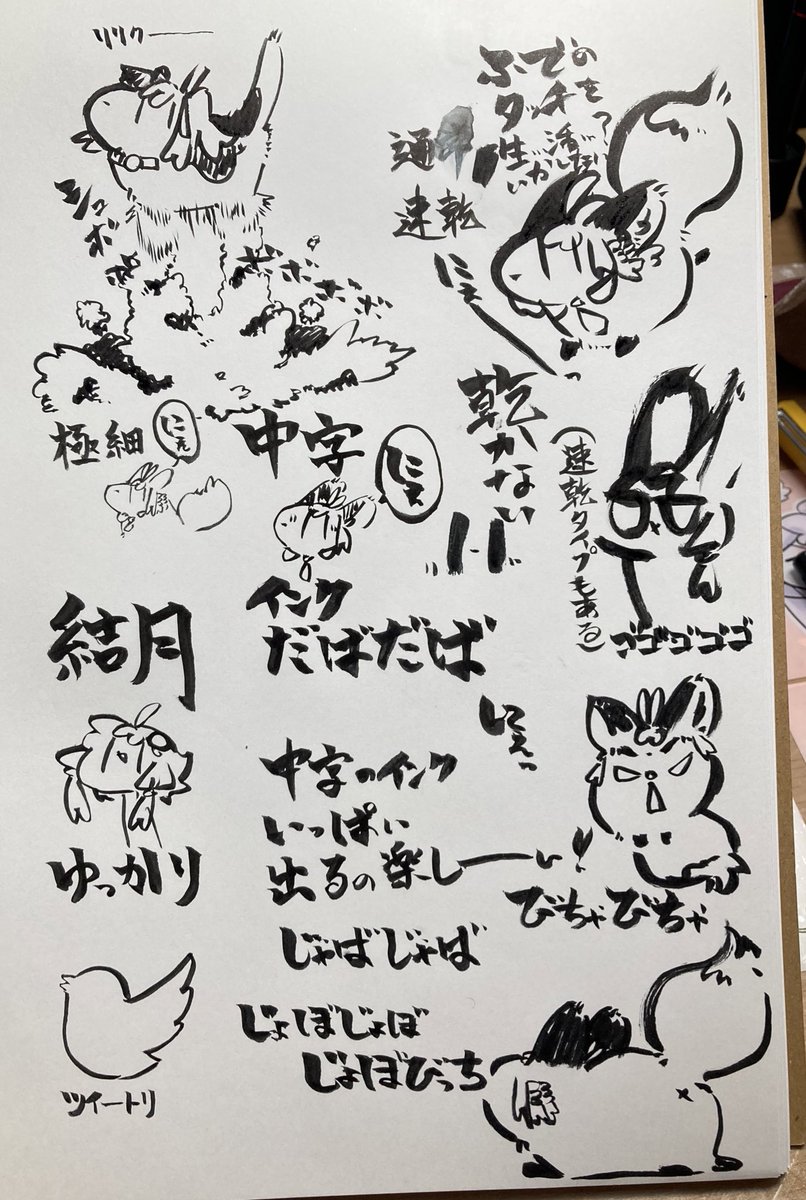 リリクー
シュボボボ
ボボボボボ
ふでの
タッチを
生かい
活
通
速乾
にぇーっ
極細
にぇ
中字
にぇ
乾かない
(速乾タイプもある)
ゴゴゴゴゴ
結月
インク
だばだば
にぇっ
ゆっかり
中字のインク
いっぱい
出るの楽しーい!
びちゃびちゃ
じゃばじゃば
じょぼじょぼ
じょぼびっち
ツイートリ